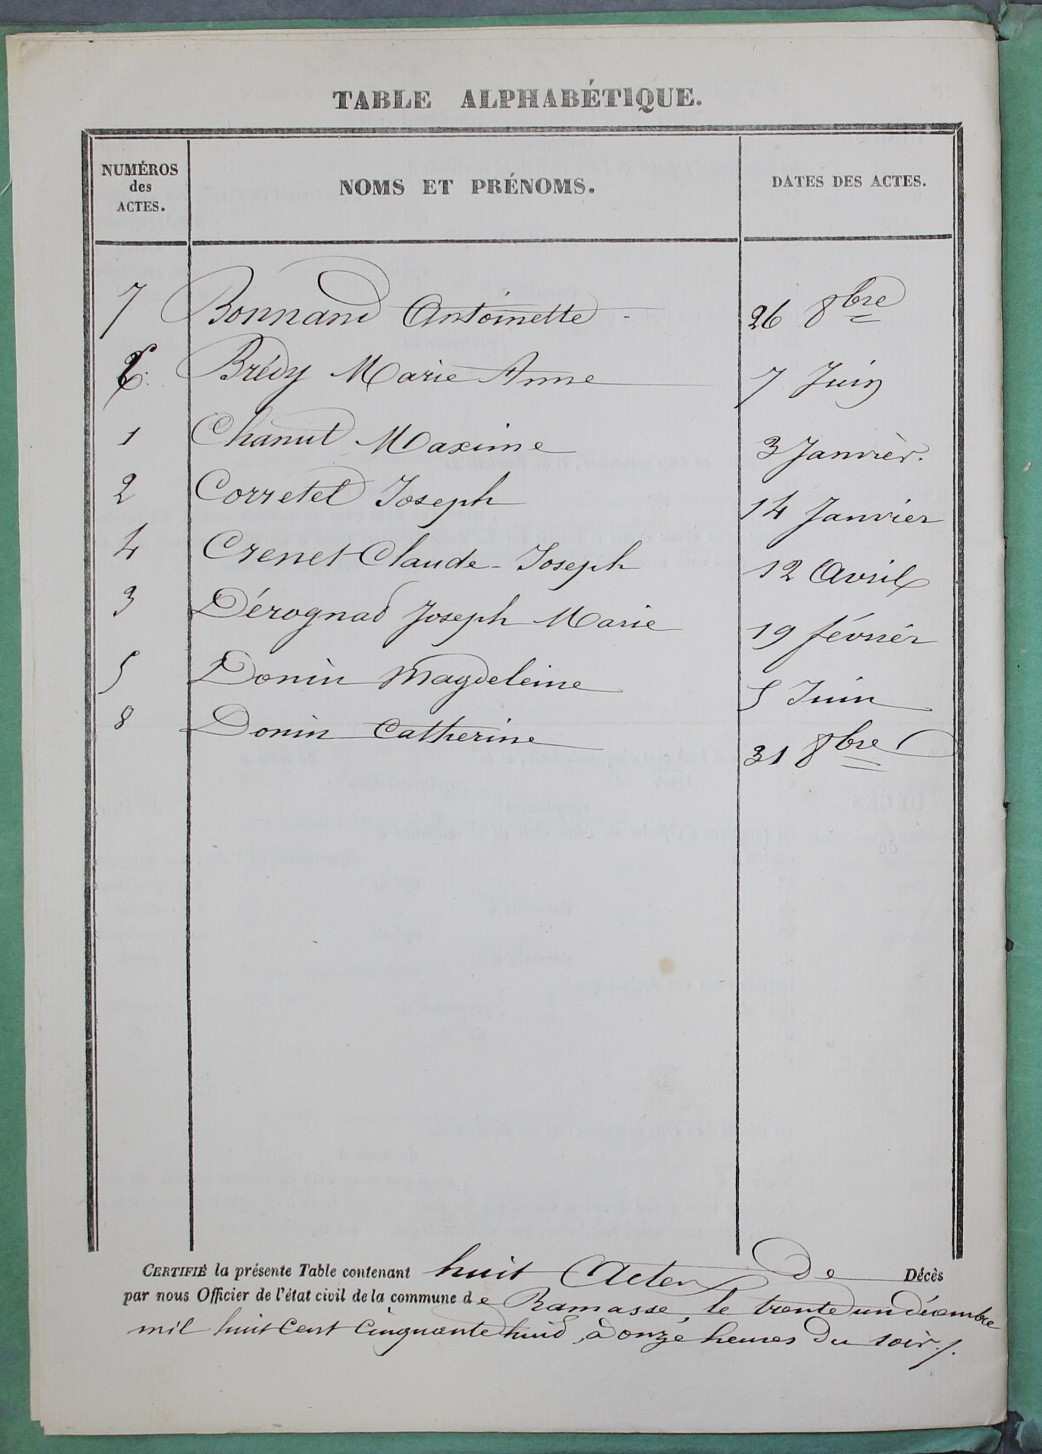 TABLE ALPHABÉTIQUE.
NUMÉROS des ACTES. NOMS ET PRÉNOMS. DATES DES ACTES.
7 Bonnand Antoinette 26 8bre
6 Brédy Marie Anne 7 Juin
1 Chanut Maxime 3 Janvier.
2 Corretel Joseph 14 Janvier
4 Crenet Claude-Joseph 12 Avril
3 Dérognad Joseph Marie 19 février
5 Donin Magdeleine 5 Juin
8 Donin Catherine 31 8bre
CERTIFIÉ la présente Table contenant huit Actes de Décès
par nous Officier de l'état civil de la commune de Ramasse le trente un décembre
mil huit cent cinquante huit, à onze heures du soir./.